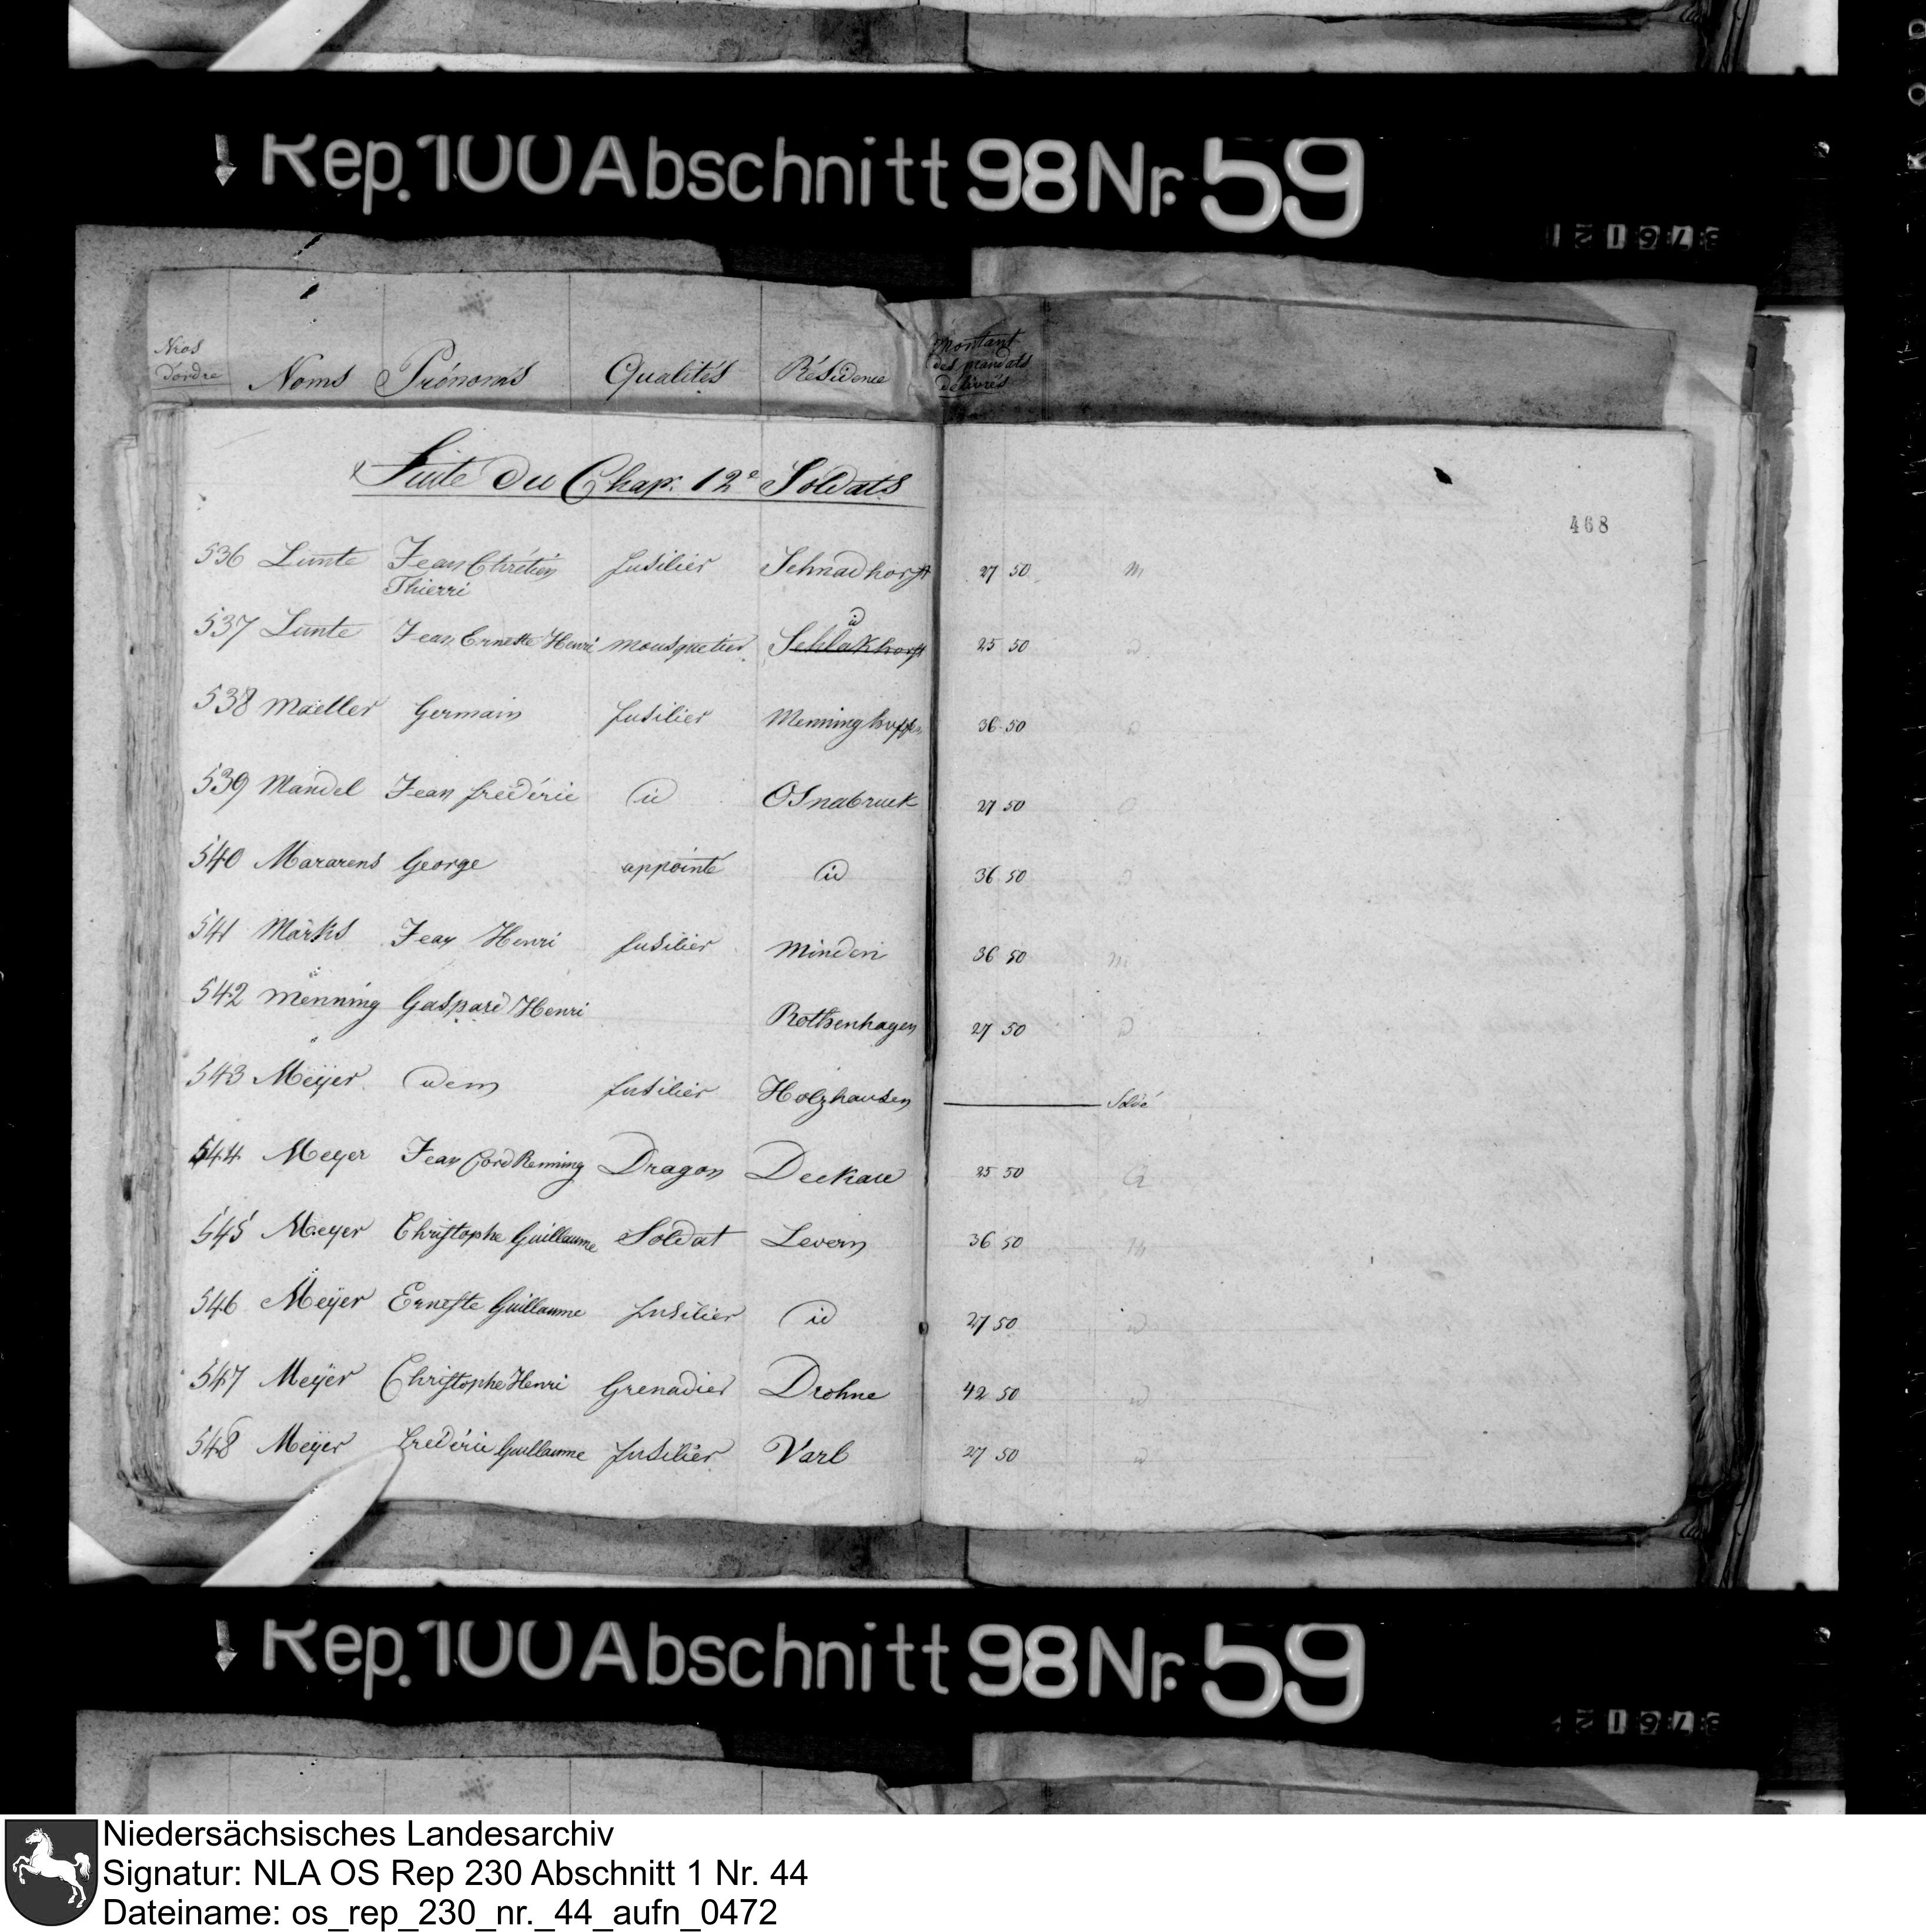 Rep. 100 Abschnitt 98 Nr. 59
Nros d'ordre Noms Prénoms Qualités Résidence Montant des mandats délivrés
Suite du Chap. 12e Soldats
468
536 Lunte Jean Chrétien Thierri fusilier Schnadhorst 27 50 m
537 Lunte Jean Erneste Henri mousquetier id Schlakhorst 25 50 id
538 Maëller Germain fusilier Menninghuffen 36 50
539 Mandel Jean frédéric id Osnabruck 27 50 O
540 Mararens George appointé id 36 50
541 Märks Jean Henri fusilier Minden 36 50 m
542 Menning Gaspard Henri Rothenhagen 27 50
543 Meÿer idem fusilier Holzhausen Soldé
544 Meyer Jean Cord Renning Dragon Deckau 25 50
545 Meyer Christophe Guillaume Soldat Levern 36 50 m
546 Meÿer Erneste Guillaume fusilier id 27 50 id
547 Meÿer Christophe Henri Grenadier Drohne 42 50 id
548 Meÿer frédéric Guillaume fusilier Varl 27 50 id
Rep. 100 Abschnitt 98 Nr. 59
Niedersächsisches Landesarchiv
Signatur: NLA OS Rep 230 Abschnitt 1 Nr. 44
Dateiname: os_rep_230_nr._44_aufn_0472